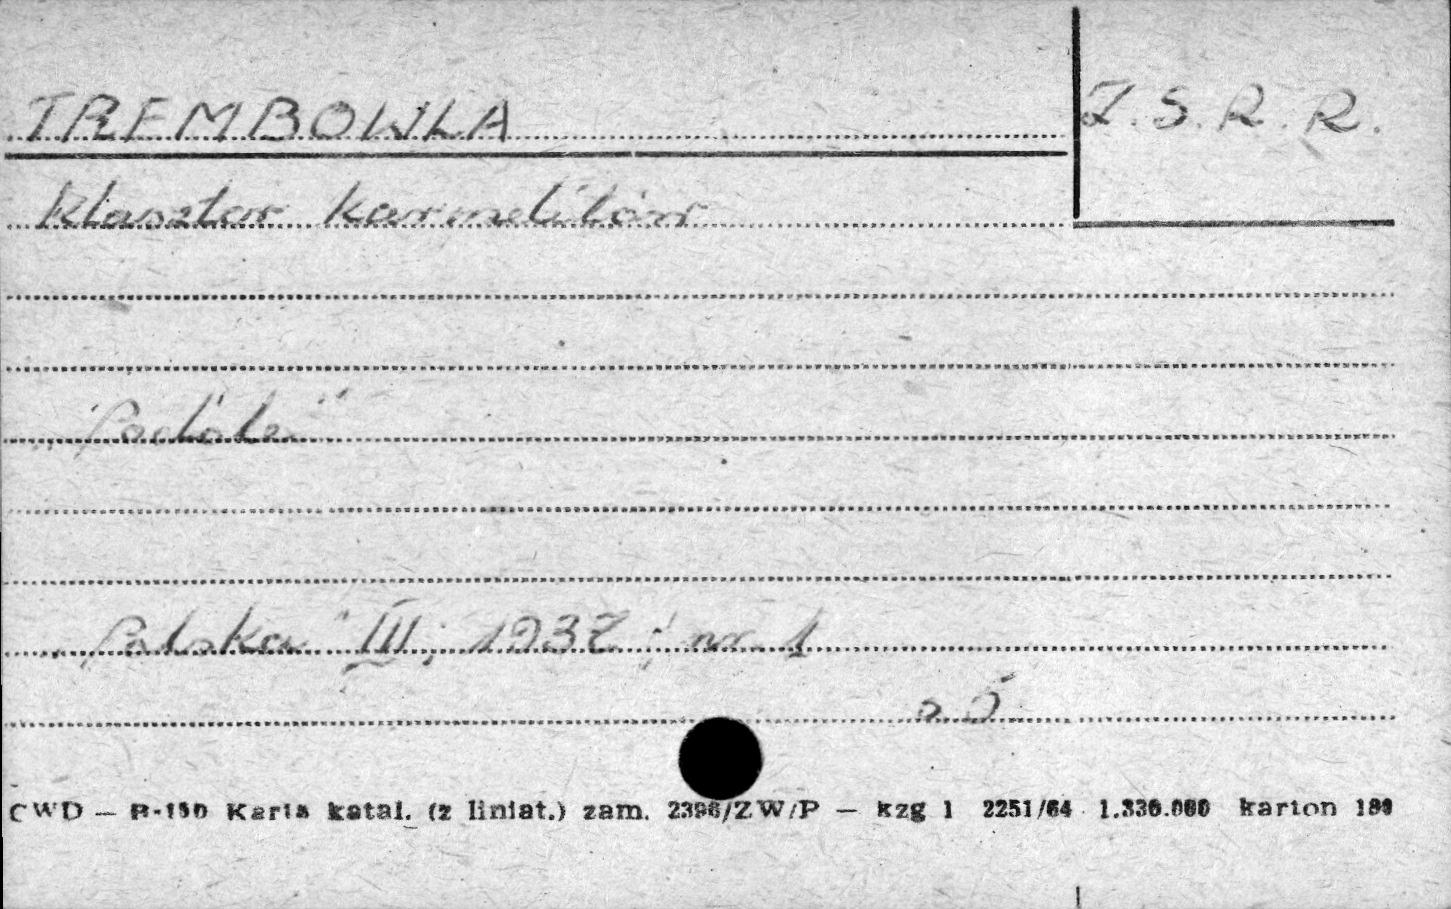 TREMBOWLA
Z.S.R.R.
Klasztor karmelitów
"Podole"
"Polska" III, 1937, nr 1
s. 5
CWD — B-150 Karta katal. (z liniat.) zam. 2396/ZW/P — kzg 1 2251/64 1.330.000 karton 180